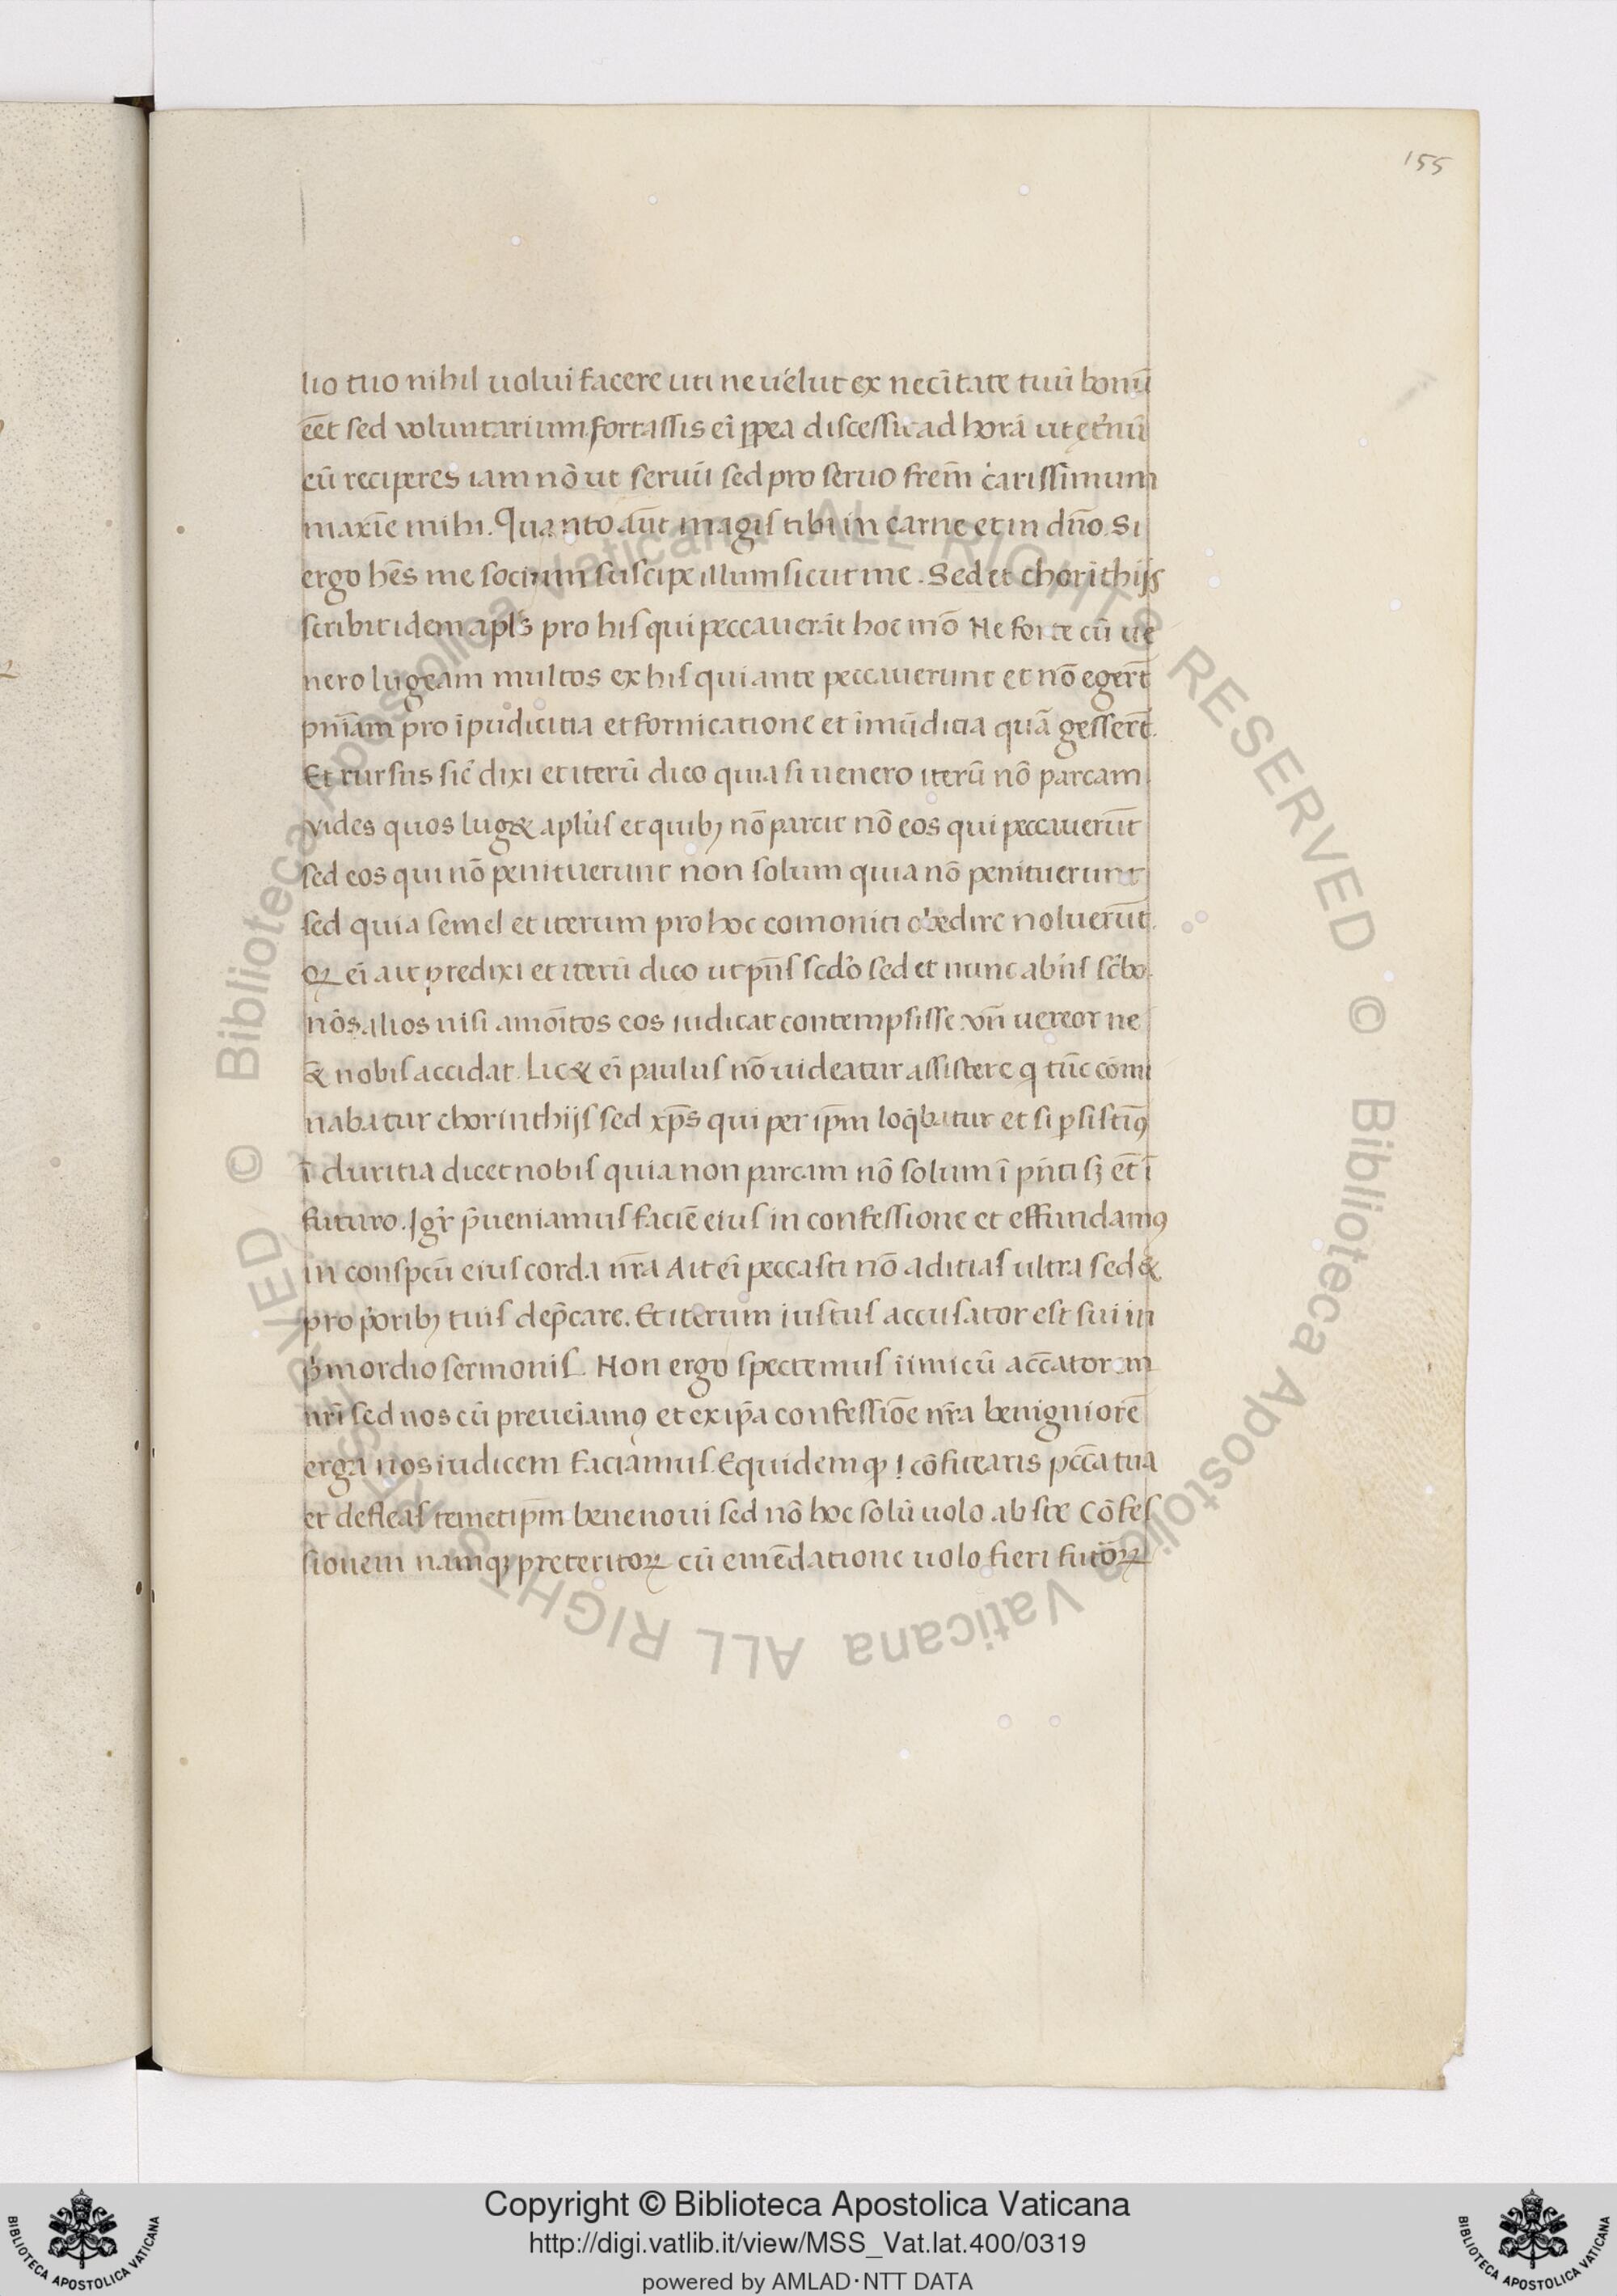 155
lio tuo nihil uolui facere uti ne uelut ex necitate tuũ bonũ
eet sed voluntarium fortassis ei ppea discessit ad horã ut etnũ
eũ reciperes iam nõ ut seruũ sed pro seruo frem carissimum
maxie mihi. Quanto aut magis tibi in carne et in dño. Si
ergo hes me socium suscipe illum sicut me. Sed et chorithijs
scribit idem apls pro his qui peccauerat hoc mõ Ne forte cũ ue
nero lugeam multos ex his qui ante peccauerunt et nõ egert
pniam pro ĩpudicitia et fornicatione et ĩmũditia quã gessert.
Et rursus sic dixi et iterũ dico quia si uenero iterũ nõ parcam
vides quos lug& aplus et quibꝫ nõ parcit nõ eos qui peccauerut
sed eos qui nõ penituerunt non solum quia nõ penituerunt
sed quia semel et iterum pro hoc comoniti obedire noluerut.
ei ait predixi et iterũ dico ut pns scdo sed et nunc abns scbo.
nõs alios nisi amoitos eos iudicat contempsisse vñ uereor ne
& nobis accidat. Lic& ei paulus nõ uideatur assistere q tũc comi
nabatur chorinthijs sed xps qui per ipm loqbatur et si psistimꝰ
ĩ duritia dicet nobis quia non parcam nõ solum ĩ pnti sꝫ et ĩ
futuro. Igr pueniamus facie eius in confessione et effundamꝰ
in conspcũ eius corda nra Ait ei peccasti nõ adicias ultra sed &
pro poribꝫ tuis depcare. Et iterum iustus accusator est sui in
pmordio sermonis. Non ergo spectemus ĩimicũ accatorem
nri sed nos eũ preueiamꝰ et ex ipa confessioe nra benigniore
erga nos iudicem faciamus. Equidem cõfitearis pcca tua
et defleas temetipm bene noui sed nõ hoc solũ uolo abs te Cõfes
sionem namqꝫ preteritoꝝ cũ emedatione uolo fieri futoꝝ
Copyright © Biblioteca Apostolica Vaticana
http://digi.vatlib.it/view/MSS_Vat.lat.400/0319
powered by AMLAD·NTT DATA
BIBLIOTECA APOSTOLICA VATICANA
BIBLIOTECA APOSTOLICA VATICANA